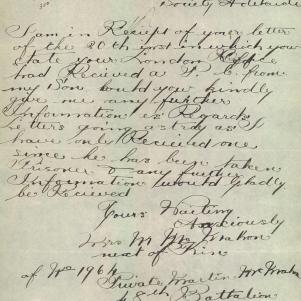 Society Adelaide
I am in Reciept of your letter
of the 20th inst in which you
state your London
had Recieved a P.C. from
my Son would you kindly
give me any further
Information as Regards
Letters going astray as I
have only Recieved one
since he has been taken
Prisoner & any further
Information would gladly
be Recieved
Yours Waiting
Anxiously
Mrs M McMahon
next of Kin
of No 1964
Private Martin McMahon
48th Battalion